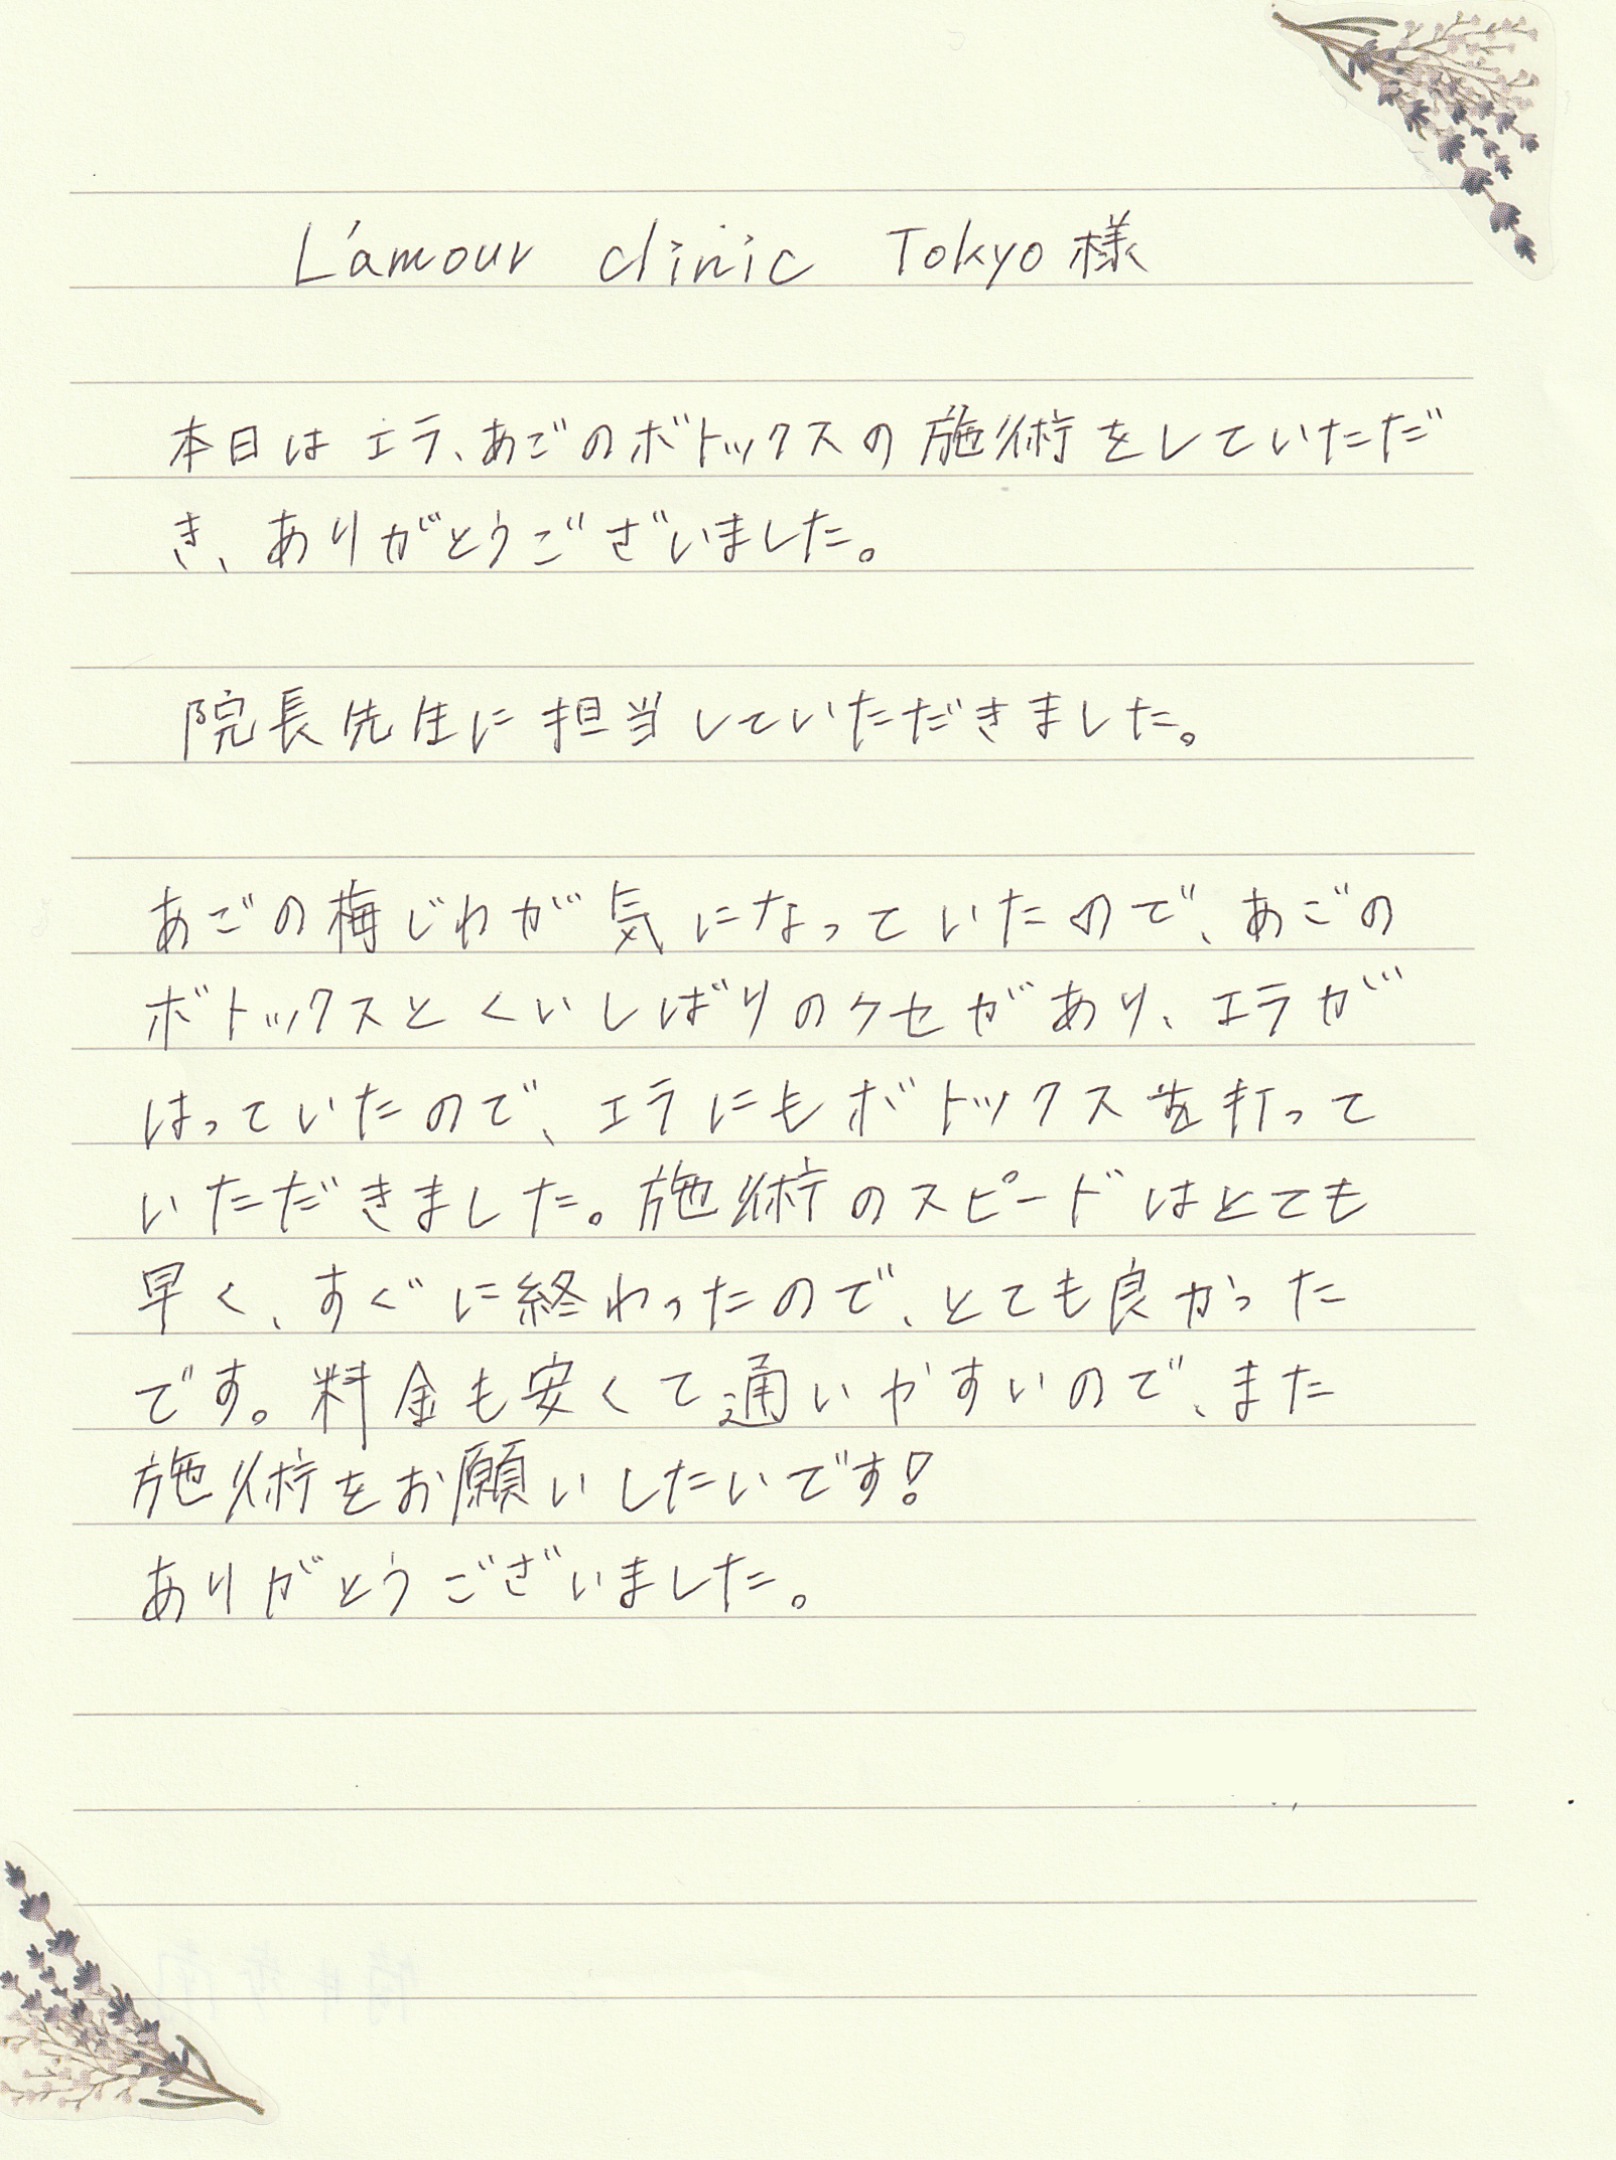 L'amour clinic Tokyo様
本日はエラ、あごのボトックスの施術をしていただ
き、ありがとうございました。
院長先生に担当していただきました。
あごの梅じわが気になっていたので、あごの
ボトックスとくいしばりのクセがあり、エラが
はっていたので、エラにもボトックスを打って
いただきました。施術のスピードはとても
早く、すぐに終わったので、とても良かった
です。料金も安くて通いやすいので、また
施術をお願いしたいです!
ありがとうございました。